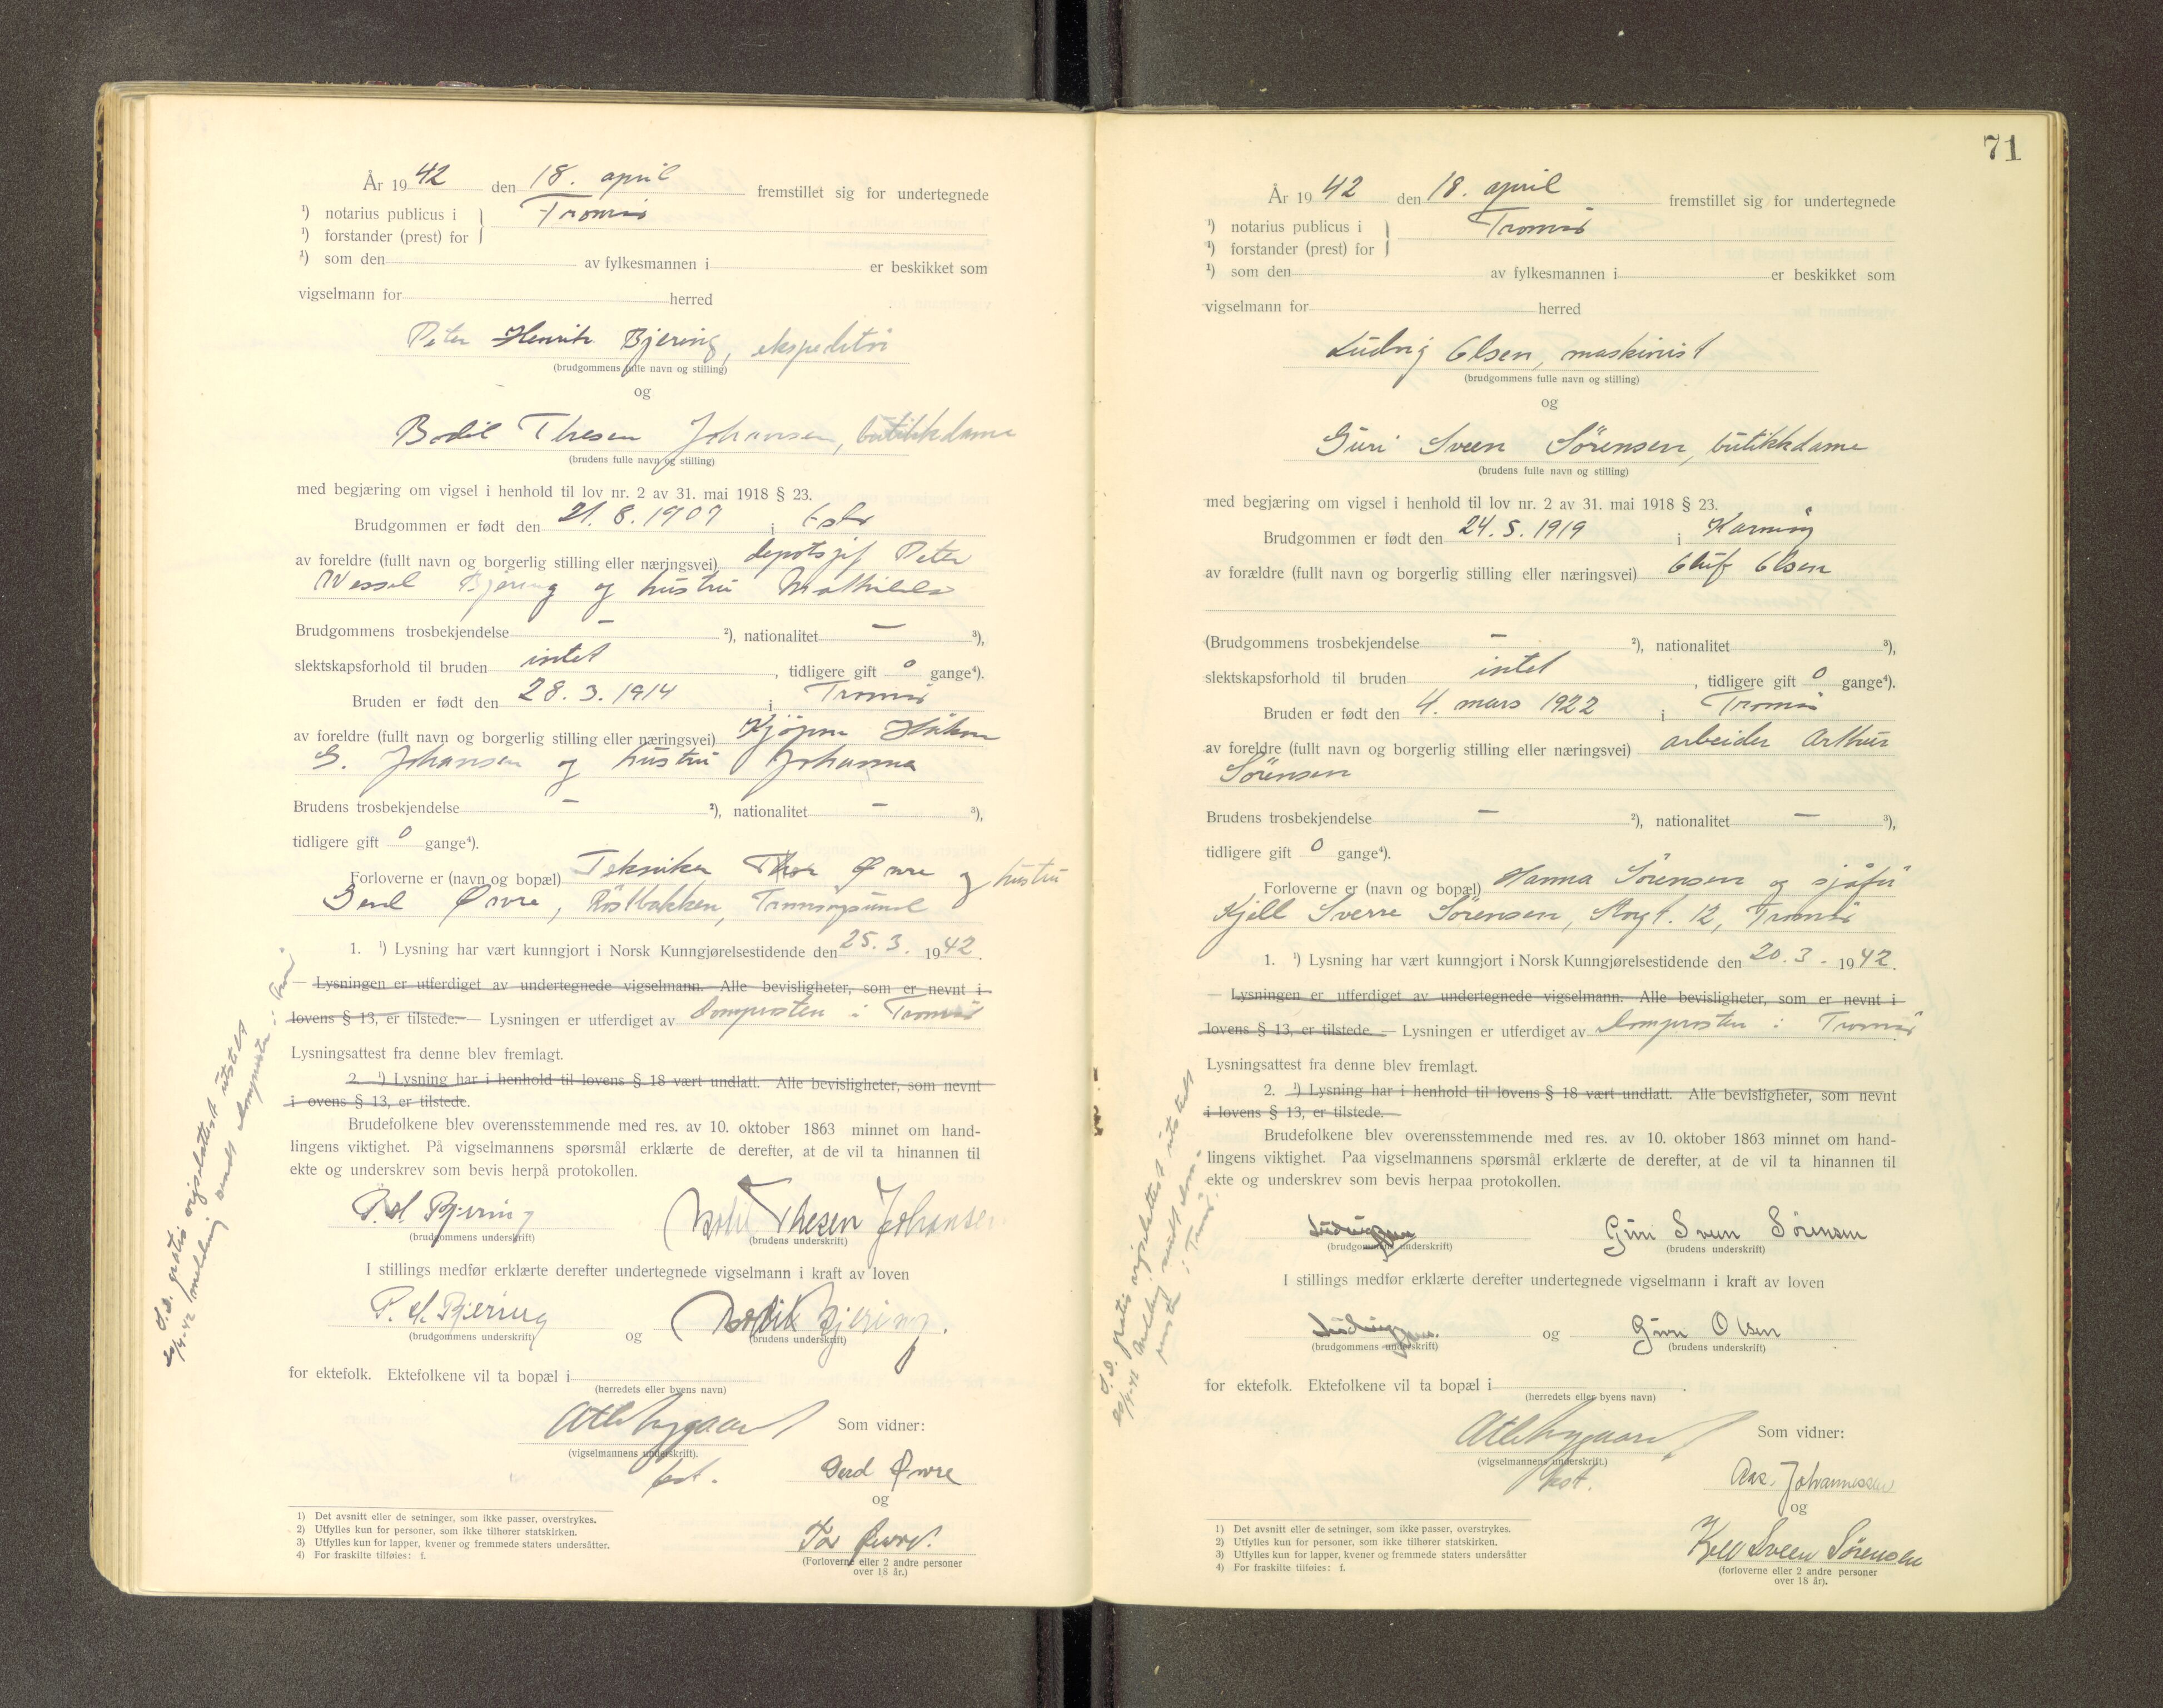 År 1942 den 18. april fremstillet sig for undertegnede
¹) notarius publicus i Tromsö
¹) forstander (prest) for
¹) som den av fylkesmannen i er beskikket som
vigselmann for herred
Peter Henrik Bjering, ekspeditör
(brudgommens fulle navn og stilling)
og
Bodil Thesen Johansen, butikkdame
(brudens fulle navn og stilling)
med begjæring om vigsel i henhold til lov nr. 2 av 31. mai 1918 § 23.
Brudgommen er født den 21. 8. 1909 i Oslo
av foreldre (fullt navn og borgerlig stilling eller næringsvei) depotsjef Peter
Wessel Bjering og hustru Mathilde
Brudgommens trosbekjendelse — ²), nationalitet — ³),
slektskapsforhold til bruden intet, tidligere gift 0 gange⁴).
Bruden er født den 28. 3. 1914 i Tromsö
av foreldre (fullt navn og borgerlig stilling eller næringsvei) Kjøpm Håkon
G. Johansen og hustru Johanna
Brudens trosbekjendelse — ²), nationalitet — ³),
tidligere gift 0 gange⁴).
Forloverne er (navn og bopæl) Tekniker Thor Øvre og hustru
Gerd Øvre, Tromsöysund
1. ¹) Lysning har vært kunngjort i Norsk Kunngjørelsestidende den 25. 3. 1942.
— Lysningen er utferdiget av undertegnede vigselmann. Alle bevisligheter, som er nevnt i
lovens § 13, er tilstede. — Lysningen er utferdiget av domprosten i Tromsö
Lysningsattest fra denne blev fremlagt.
2 ¹) Lysning har i henhold til lovens § 18 vært undlatt. Alle bevisligheter, som nevnt
i ovens § 13, er tilstede.
Brudefolkene blev overensstemmende med res. av 10. oktober 1863 minnet om hand-
lingens viktighet. På vigselmannens spørsmål erklærte de derefter, at de vil ta hinannen til
ekte og underskrev som bevis herpå protokollen.
P. H. Bjering Bodil Thesen Johansen
(brudgommens underskrift) (brudens underskrift)
I stillings medfør erklærte derefter undertegnede vigselmann i kraft av loven
P. H. Bjering og Bodil Bjering.
(brudgommens underskrift) (brudens underskrift)
for ektefolk. Ektefolkene vil ta bopæl i
(herredets eller byens navn)
Som vidner:
(vigselmannens underskrift).
kst.
Gerd Øvre
og
Tor Øvre.
(Forloverne eller 2 andre personer
over 18 år.)
1) Det avsnitt eller de setninger, som ikke passer, overstrykes.
2) Utfylles kun for personer, som ikke tilhører statskirken.
3) Utfylles kun for lapper, kvener og fremmede staters undersåtter.
4) For fraskilte tilføies: f.
S.D. gratis vigselattest utstedt
20/4-42 melding sendt domprosten i Tromsö
71
År 1942 den 18. april fremstillet sig for undertegnede
¹) notarius publicus i Tromsö
¹) forstander (prest) for
¹) som den av fylkesmannen i er beskikket som
vigselmann for herred
Ludvig Olsen, maskinist
(brudgommens fulle navn og stilling)
og
Guri Sveen Sörensen, butikkdame
(brudens fulle navn og stilling)
med begjæring om vigsel i henhold til lov nr. 2 av 31. mai 1918 § 23.
Brudgommen er født den 24. 5. 1919 i Karmöy
av forældre (fullt navn og borgerlig stilling eller næringsvei) Oluf Olsen
(Brudgommens trosbekjendelse — ²), nationalitet ³),
slektskapsforhold til bruden intet, tidligere gift 0 gange⁴).
Bruden er født den 4. mars 1922 i Tromsö
av foreldre (fullt navn og borgerlig stilling eller næringsvei) arbeider Arthur
Sörensen
Brudens trosbekjendelse — ²), nationalitet — ³),
tidligere gift 0 gange⁴).
Forloverne er (navn og bopæl) Hanna Sörensen og sjåför
Kjell Sverre Sörensen, Storgt. 12, Tromsö
1. ¹) Lysning har vært kunngjort i Norsk Kunngjørelsestidende den 20. 3. 1942.
— Lysningen er utferdiget av undertegnede vigselmann. Alle bevisligheter, som er nevnt i
lovens § 13, er tilstede. — Lysningen er utferdiget av domprosten i Tromsö
Lysningsattest fra denne blev fremlagt.
2. ¹) Lysning har i henhold til lovens § 18 vært undlatt. Alle bevisligheter, som nevnt
i lovens § 13, er tilstede.
Brudefolkene blev overensstemmende med res. av 10. oktober 1863 minnet om hand-
lingens viktighet. Paa vigselmannens spørsmål erklærte de derefter, at de vil ta hinannen til
ekte og underskrev som bevis herpaa protokollen.
Ludvig Olsen Guri Sveen Sörensen
(brudgommens underskrift) (brudens underskrift)
I stillings medfør erklærte derefter undertegnede vigselmann i kraft av loven
Ludvig Olsen. og Guri Olsen
(brudgommens underskrift) (brudens underskrift)
for ektefolk. Ektefolkene vil ta bopæl i .
(herredets eller byens navn)
Som vidner:
(vigselmannens underskrift.)
kst.
Johannessen
og
Kjell Sveen Sörensen
(forloverne eller 2 andre personer
over 18 år).
1) Det avsnitt eller de setninger, som ikke passer, overstrykes.
2) Utfylles kun for personer, som ikke tilhører statskirken.
3) Utfylles kun for lapper, kvener og fremmede staters undersåtter
4) For fraskilte tilføies: f.
S.D. gratis vigselattest utstedt
20/4-42 melding sendt dom-
prosten i Tromsö.